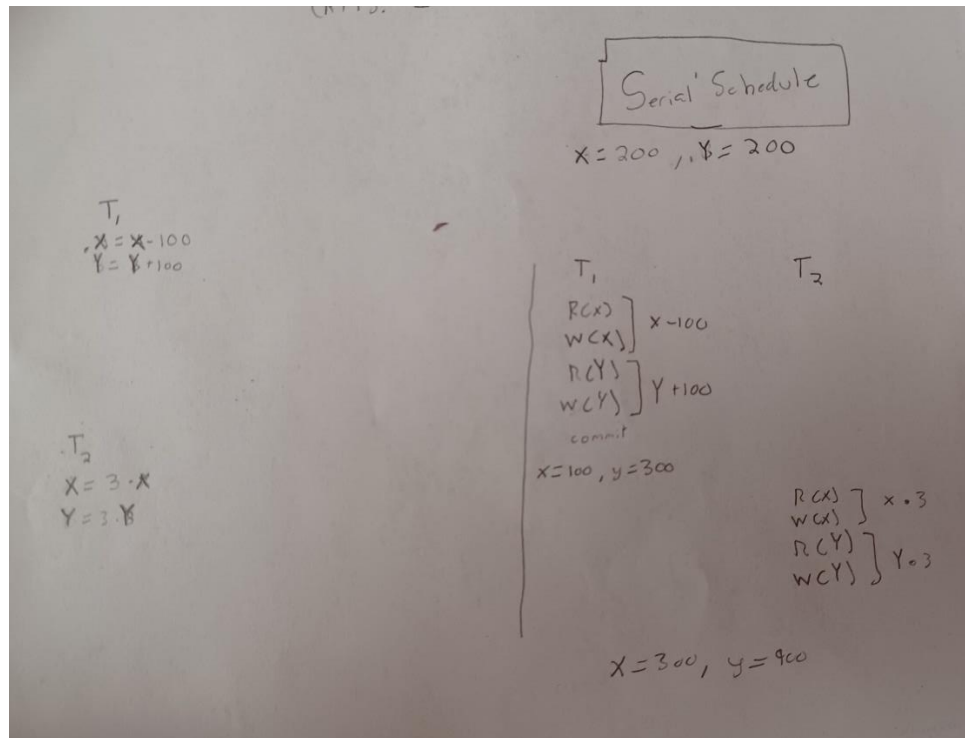 Serial Schedule
X=200, Y=200
T1
X=X-100
Y=Y+100
T2
X=3·X
Y=3·Y
T1 T2
R(X)
W(X) ] X-100
R(Y)
W(Y) ] Y+100
commit
X=100, y=300
R(X)
W(X) ] X·3
R(Y)
W(Y) ] Y·3
X=300, y=900